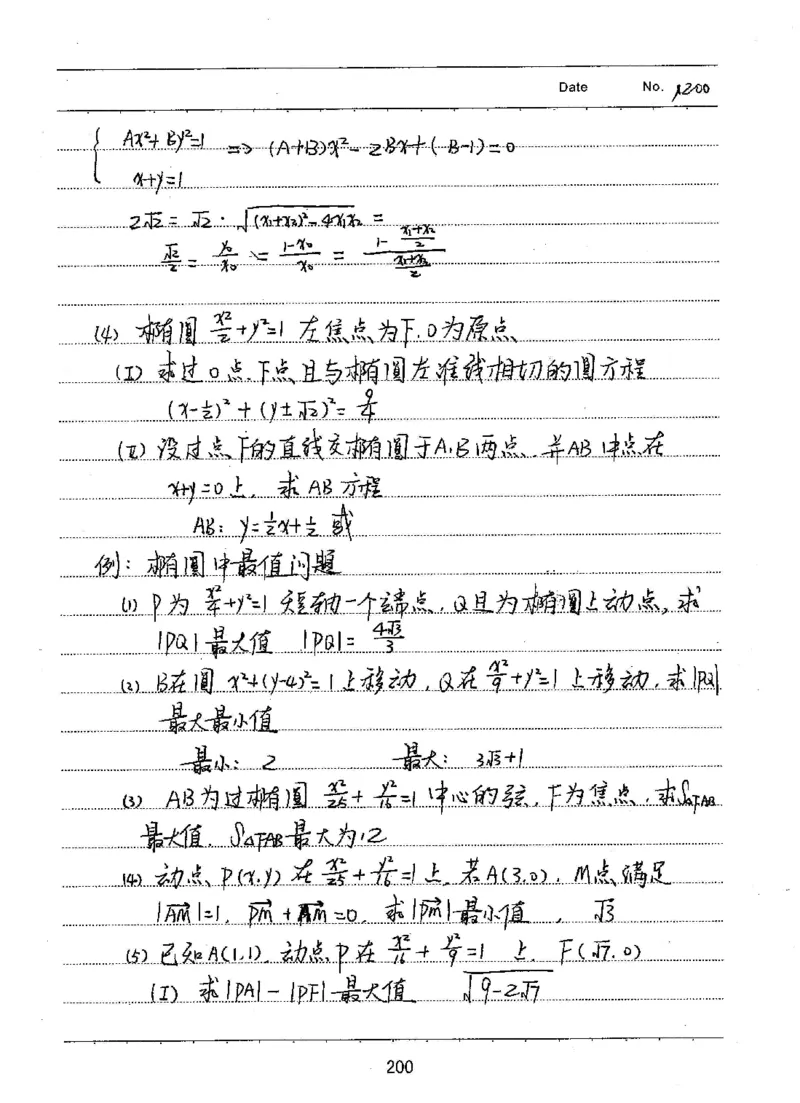 Date No. p200
{ Ax²+By²=1 => (A+B)x²-2Bx+(B-1)=0
x+y=1
2√2=√2·√(x₁+x₂)²-4x₁x₂ =
√2/2 = y₀/x₀ = (1-x₀)/x₀ = (1-(x₁+x₂)/2)/((x₁+x₂)/2)
(4) 椭圆 x²/2+y²=1 左焦点为F.O为原点
(I) 求过O点.F点且与椭圆左准线相切的圆方程
(x-½)²+(y±√2)²=9/4
(II) 设过点F的直线交椭圆于A.B两点.并AB中点在
x+y=0上. 求AB方程
AB: y=½x+½ 或
例: 椭圆中最值问题
(1) P为 x²/4+y²=1 短轴一个端点, Q且为椭圆上动点, 求
|PQ|最大值 |PQ|= 4√3/3
(2) B在圆 x²+(y-4)²=1上移动, Q在 x²/9+y²=1 上移动, 求|PQ|
最大最小值
最小: 2 最大: 3√3+1
(3) AB为过椭圆 x²/25+y²/16=1 中心的弦, F为焦点, 求S△FAB
最大值. S△FAB最大为12
(4) 动点P(x.y)在 x²/25+y²/16=1上. 若A(3.0), M点满足
|AM|=1. PM+AM=0. 求|PM|最小值, √3
(5) 已知A(1,1). 动点P在 x²/16+y²/9=1 上. F(√7.0)
(I) 求|PA|-|PF|最大值 √9-2√7
200